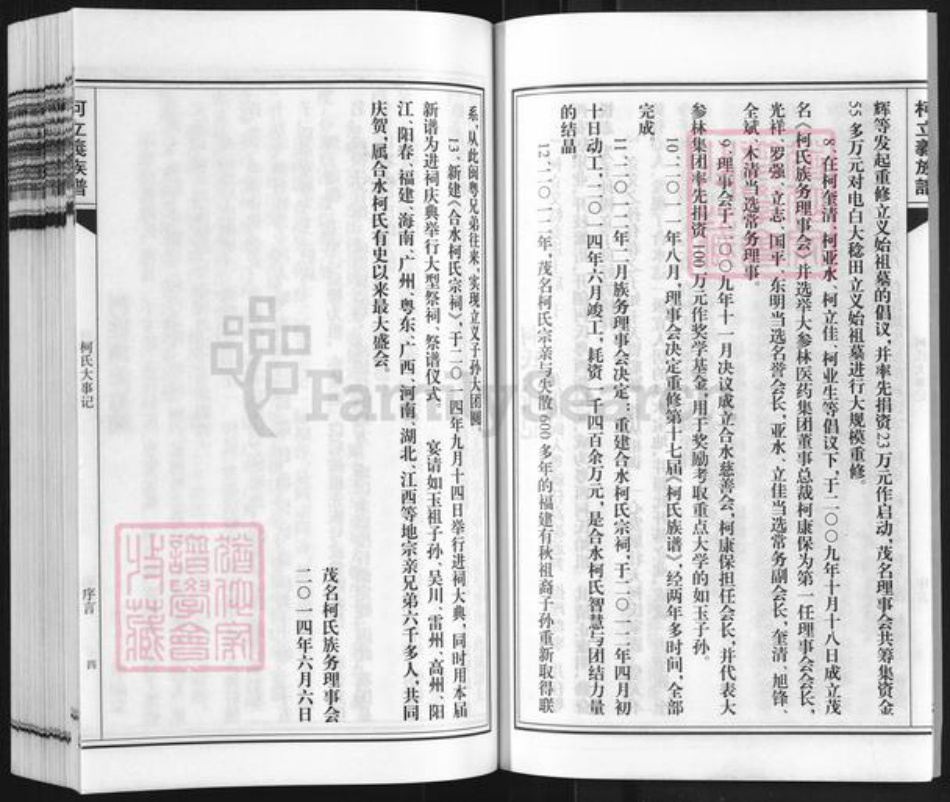 柯立義族譜
辉等发起重修立义始祖墓的倡议，并率先捐资23万元作启动，茂名理事会共筹集资金
55多万元对电白大稔田立义始祖墓进行大规模重修。
8、在柯奎清、柯亚水、柯立佳、柯业生等倡议下，于二〇〇九年十月十八日成立茂
名《柯氏族务理事会》并选举大参林医药集团董事总裁柯康保为第一任理事会会长，
光祥、罗强、立志、国平、东明当选名誉会长，亚水、立佳当选常务副会长，奎清、旭锋、
全斌、木清当选常务理事。
9、理事会于二〇〇九年十一月决议成立合水慈善会，柯康保担任会长，并代表大
参林集团率先捐资100万元作奖学基金，用于奖励考取重点大学的如玉子孙。
10、二〇一一年八月，理事会决定重修第十七届《柯氏族谱》，经两年多时间，全部
完成。
11、二〇一二年二月族务理事会决定：重建合水柯氏宗祠，于二〇一二年四月初
十日动工，二〇一四年六月竣工，耗资一千四百余万元，是合水柯氏智慧与团结力量
的结晶。
12、二〇一二年，茂名柯氏宗亲与失散600多年的福建有秋祖裔子孙重新取得联
系，从此闽粤兄弟往来，实现立义子孙大团圆。
13、新建《合水柯氏宗祠》，于二〇一四年九月十四日举行进祠大典，同时用本届
新谱为进祠庆典举行大型祭祠、祭谱仪式，宴请如玉祖子孙、吴川、雷州、高州、阳
江、阳春、福建、海南、广州、粤东、广西、河南、湖北、江西等地宗亲兄弟六千多人，共同
庆贺，属合水柯氏有史以来最大盛会。
茂名柯氏族务理事会
二〇一四年六月六日
柯立義族譜
柯氏大事记
序言
四
FamilySearch